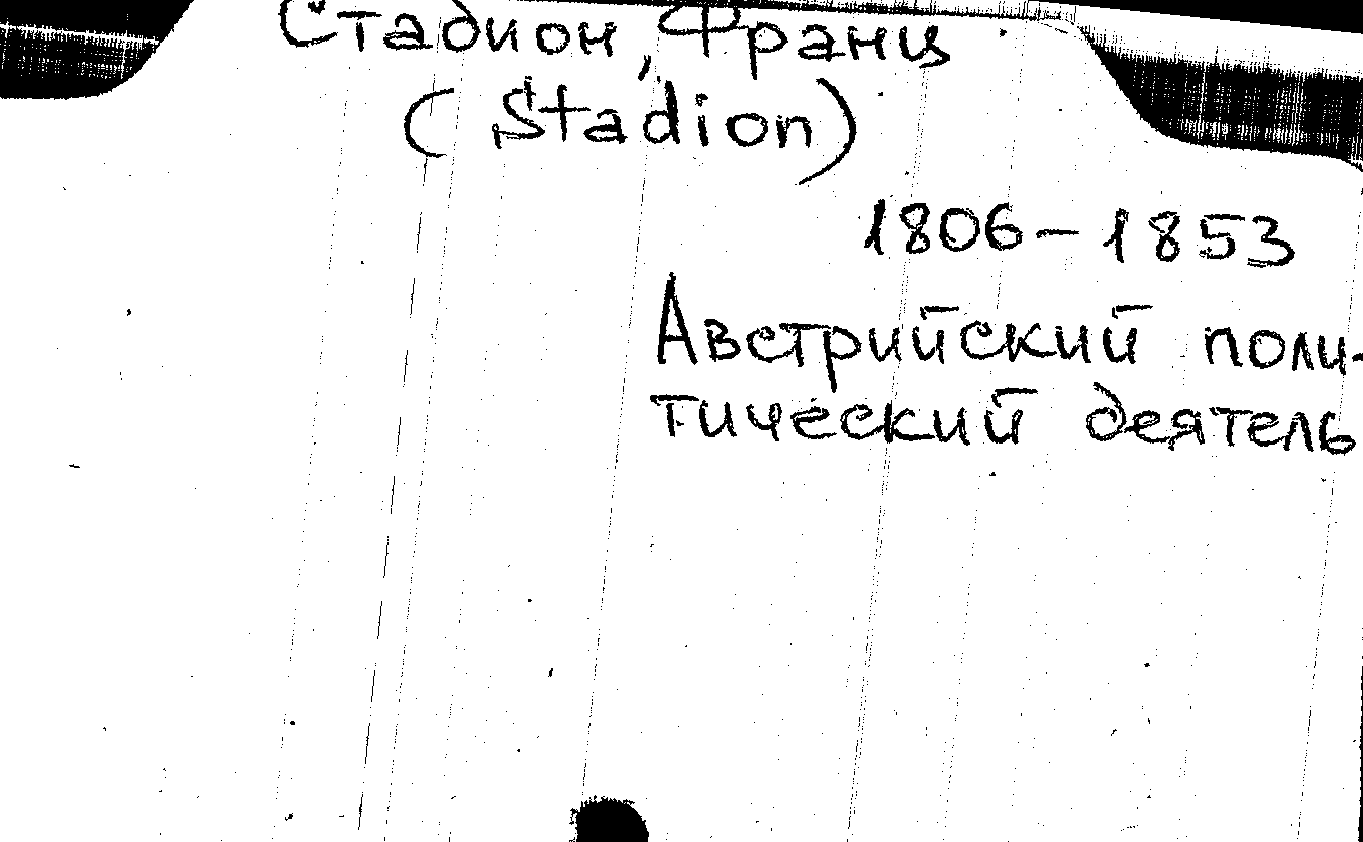 Стадион, Франц
(Stadion)
1806–1853
Австрийский поли-
тический деятель